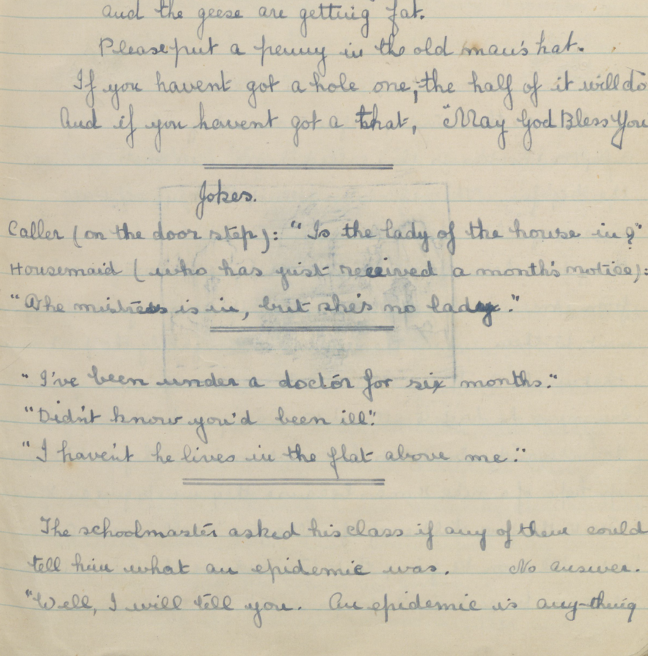 and the geese are getting fat.
Please put a penny in the old man's hat.
If you havent got a hole one, the half of it will do
And if you havent got a that, "May God Bless You
Jokes.
Caller (on the door step): "Is the lady of the house in?"
Housemaid (who has just received a month's notice):
"The mistress is in, but she's no lady."
"I've been under a doctor for six months."
"Didn't know you'd been ill."
"I haven't he lives in the flat above me."
The schoolmaster asked his class if any of them could
tell him what an epidemic was. No answer.
"Well, I will tell you. An epidemic is any-thing